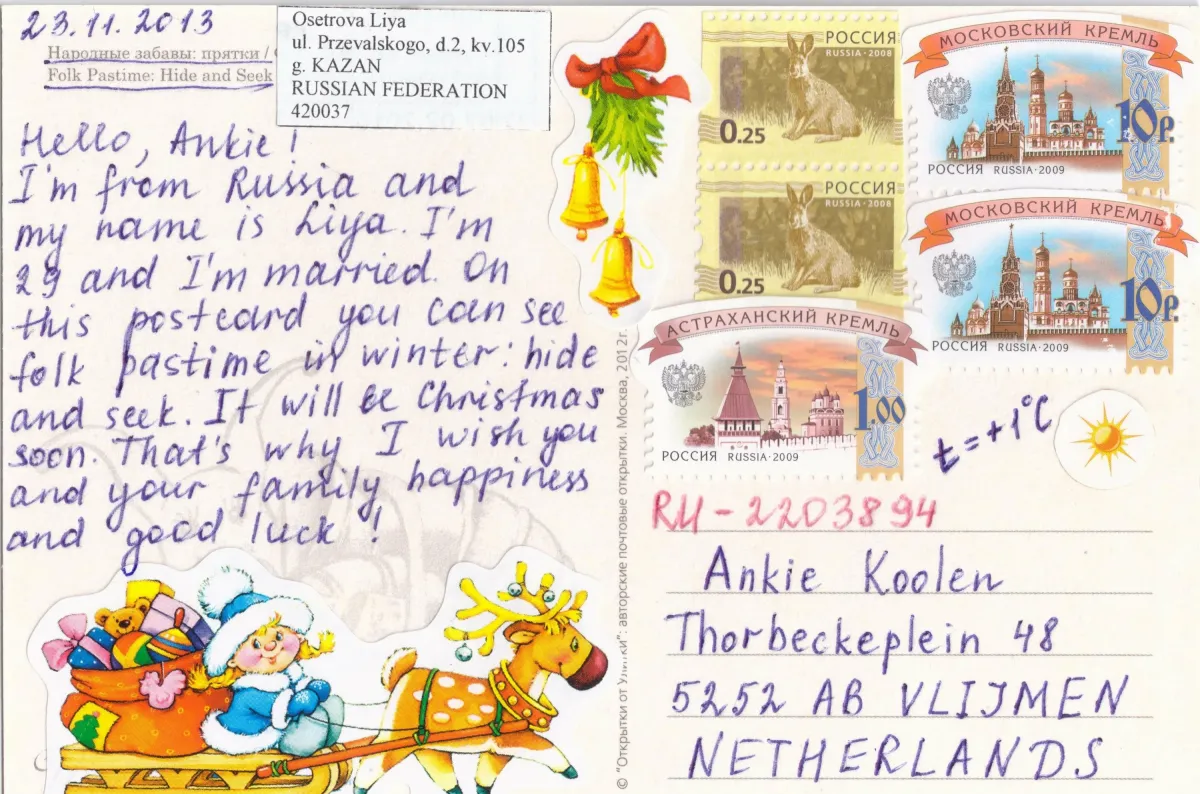 23.11.2013
Народные забавы: прятки /
Folk Pastime: Hide and Seek
Osetrova Liya
ul. Przevalskogo, d.2, kv.105
g. KAZAN
RUSSIAN FEDERATION
420037
Hello, Ankie!
I'm from Russia and
my name is Liya. I'm
29 and I'm married. On
this postcard you can see
folk pastime in winter: hide
and seek. It will be Christmas
soon. That's why I wish you
and your family happiness
and good luck!
РОССИЯ
RUSSIA·2008
0.25
РОССИЯ
RUSSIA·2008
0.25
МОСКОВСКИЙ КРЕМЛЬ
10р.
РОССИЯ RUSSIA·2009
МОСКОВСКИЙ КРЕМЛЬ
10р.
РОССИЯ RUSSIA·2009
АСТРАХАНСКИЙ КРЕМЛЬ
1.00
РОССИЯ RUSSIA·2009
t=+1°C
© "Открытки от": авторские почтовые открытки. Москва, 2012г.
RU-2203894
Ankie Koolen
Thorbeckeplein 48
5252 AB VLIJMEN
NETHERLANDS